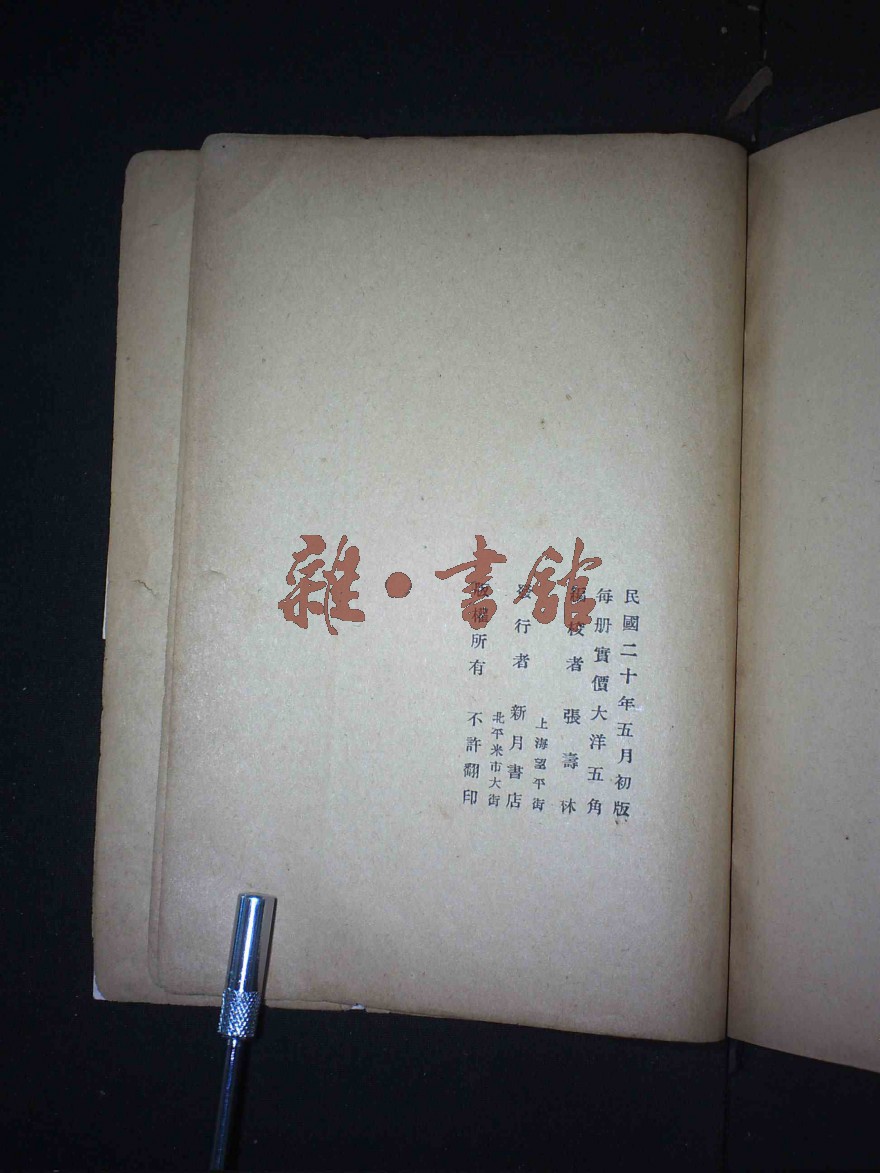 民國二十年五月初版
每册實價大洋五角
編校者 張壽林
上海望平街
發行者 新月書店
北平米市大街
版權所有 不許翻印
雜·書館